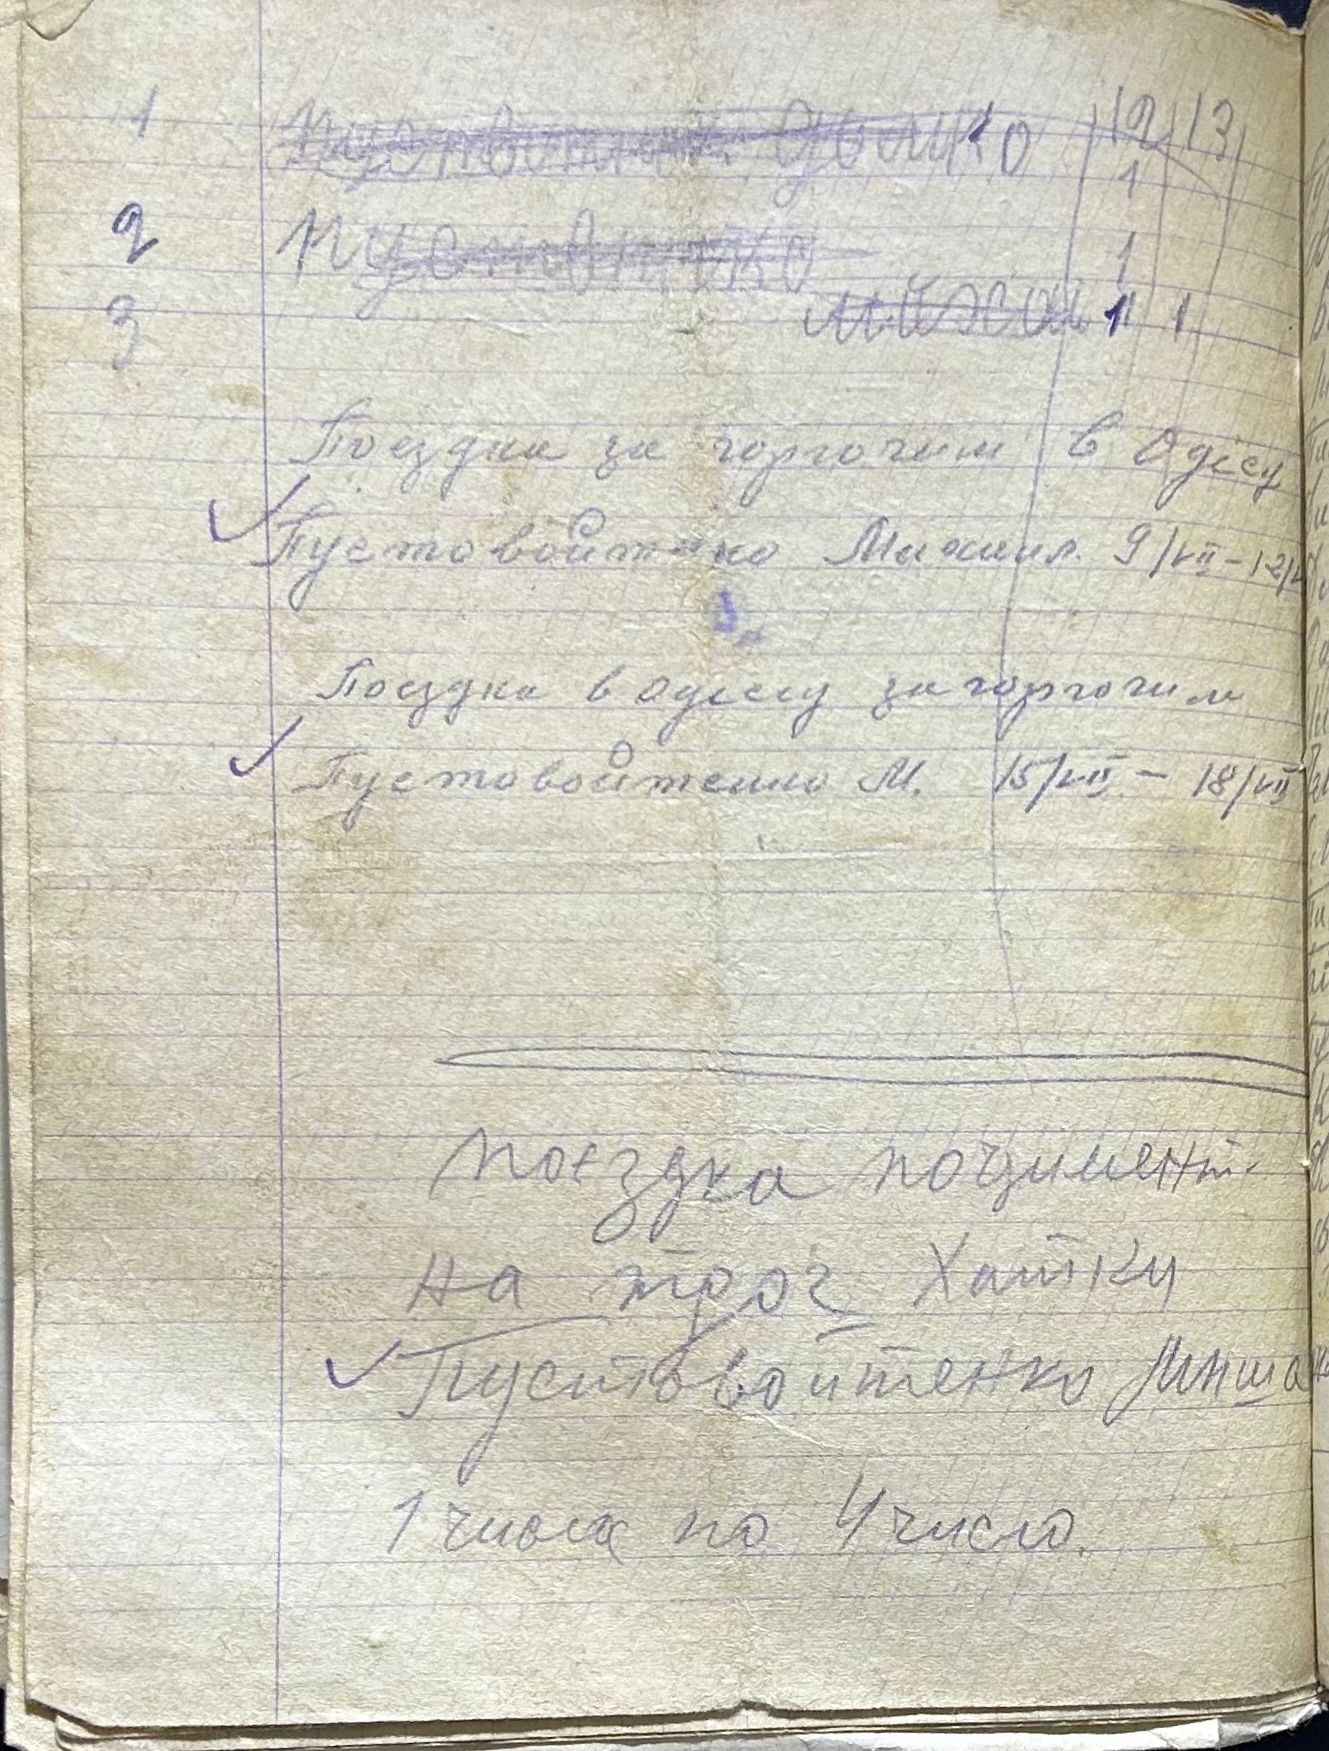 1 12 13
1
2 1
3 11 1
Поездка за горючим в Одессу
Пустовойтенко Михаил 9/VII - 12/
Поездка в одессу за горючим
Пустовойтенко М. 15/VII - 18/VII
поездка поцимент
на трас Хатки
Пустовойтенко Миша
1 числа по 4 число.